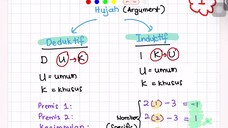 Hujah (Argument)
Deduktif
Induktif
D U → K
I K → U
U = umum
K = khusus
U = umum
K = khusus
Premis 1:
Premis 2:
Nombor
(Specific)
2(1) - 3 = -1
2(2) - 3 = 1